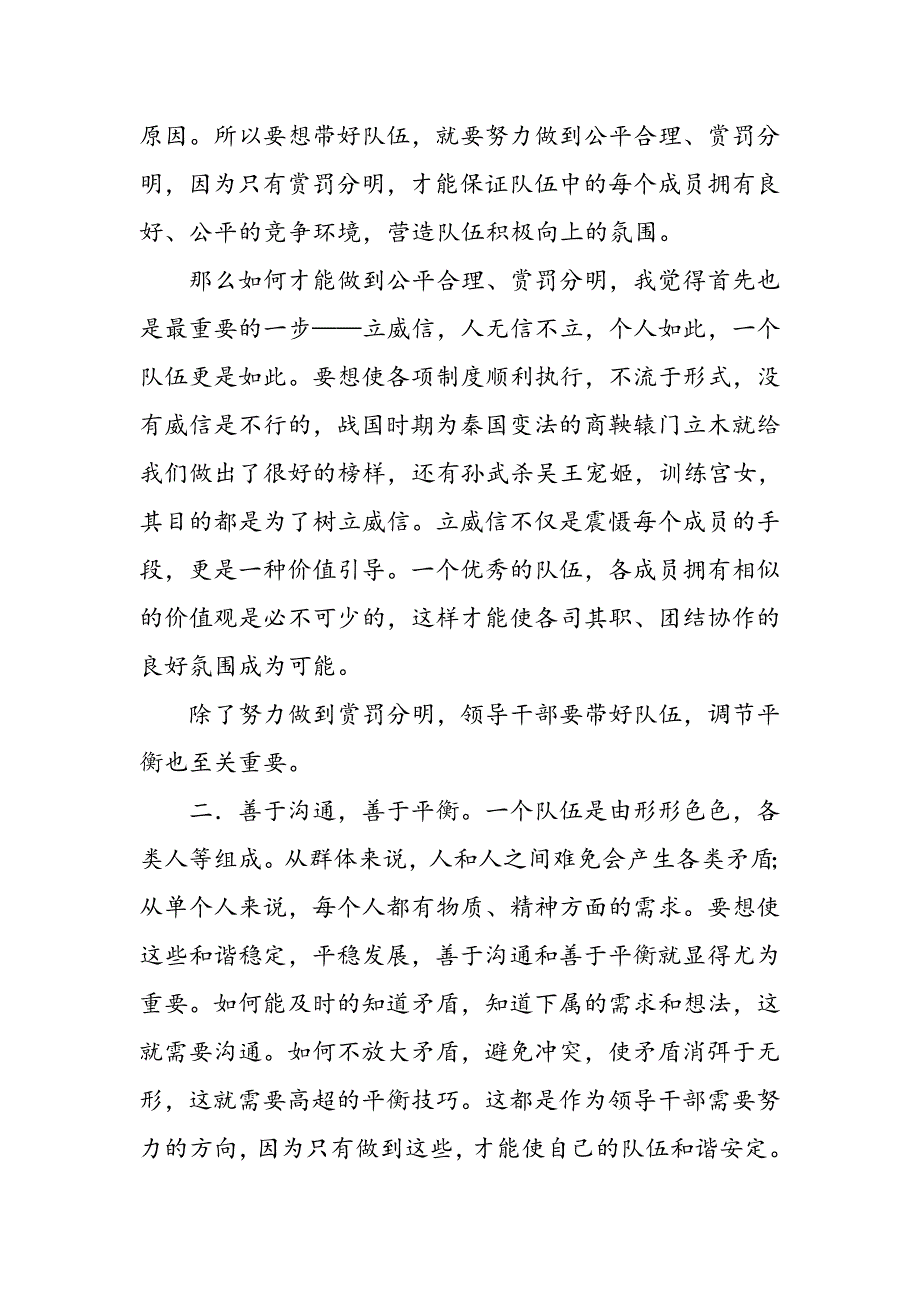 原因。所以要想带好队伍，就要努力做到公平合理、赏罚分
明，因为只有赏罚分明，才能保证队伍中的每个成员拥有良
好、公平的竞争环境，营造队伍积极向上的氛围。
那么如何才能做到公平合理、赏罚分明，我觉得首先也
是最重要的一步——立威信，人无信不立，个人如此，一个
队伍更是如此。要想使各项制度顺利执行，不流于形式，没
有威信是不行的，战国时期为秦国变法的商鞅辕门立木就给
我们做出了很好的榜样，还有孙武杀吴王宠姬，训练宫女，
其目的都是为了树立威信。立威信不仅是震慑每个成员的手
段，更是一种价值引导。一个优秀的队伍，各成员拥有相似
的价值观是必不可少的，这样才能使各司其职、团结协作的
良好氛围成为可能。
除了努力做到赏罚分明，领导干部要带好队伍，调节平
衡也至关重要。
二．善于沟通，善于平衡。一个队伍是由形形色色，各
类人等组成。从群体来说，人和人之间难免会产生各类矛盾；
从单个人来说，每个人都有物质、精神方面的需求。要想使
这些和谐稳定，平稳发展，善于沟通和善于平衡就显得尤为
重要。如何能及时的知道矛盾，知道下属的需求和想法，这
就需要沟通。如何不放大矛盾，避免冲突，使矛盾消弭于无
形，这就需要高超的平衡技巧。这都是作为领导干部需要努
力的方向，因为只有做到这些，才能使自己的队伍和谐安定。